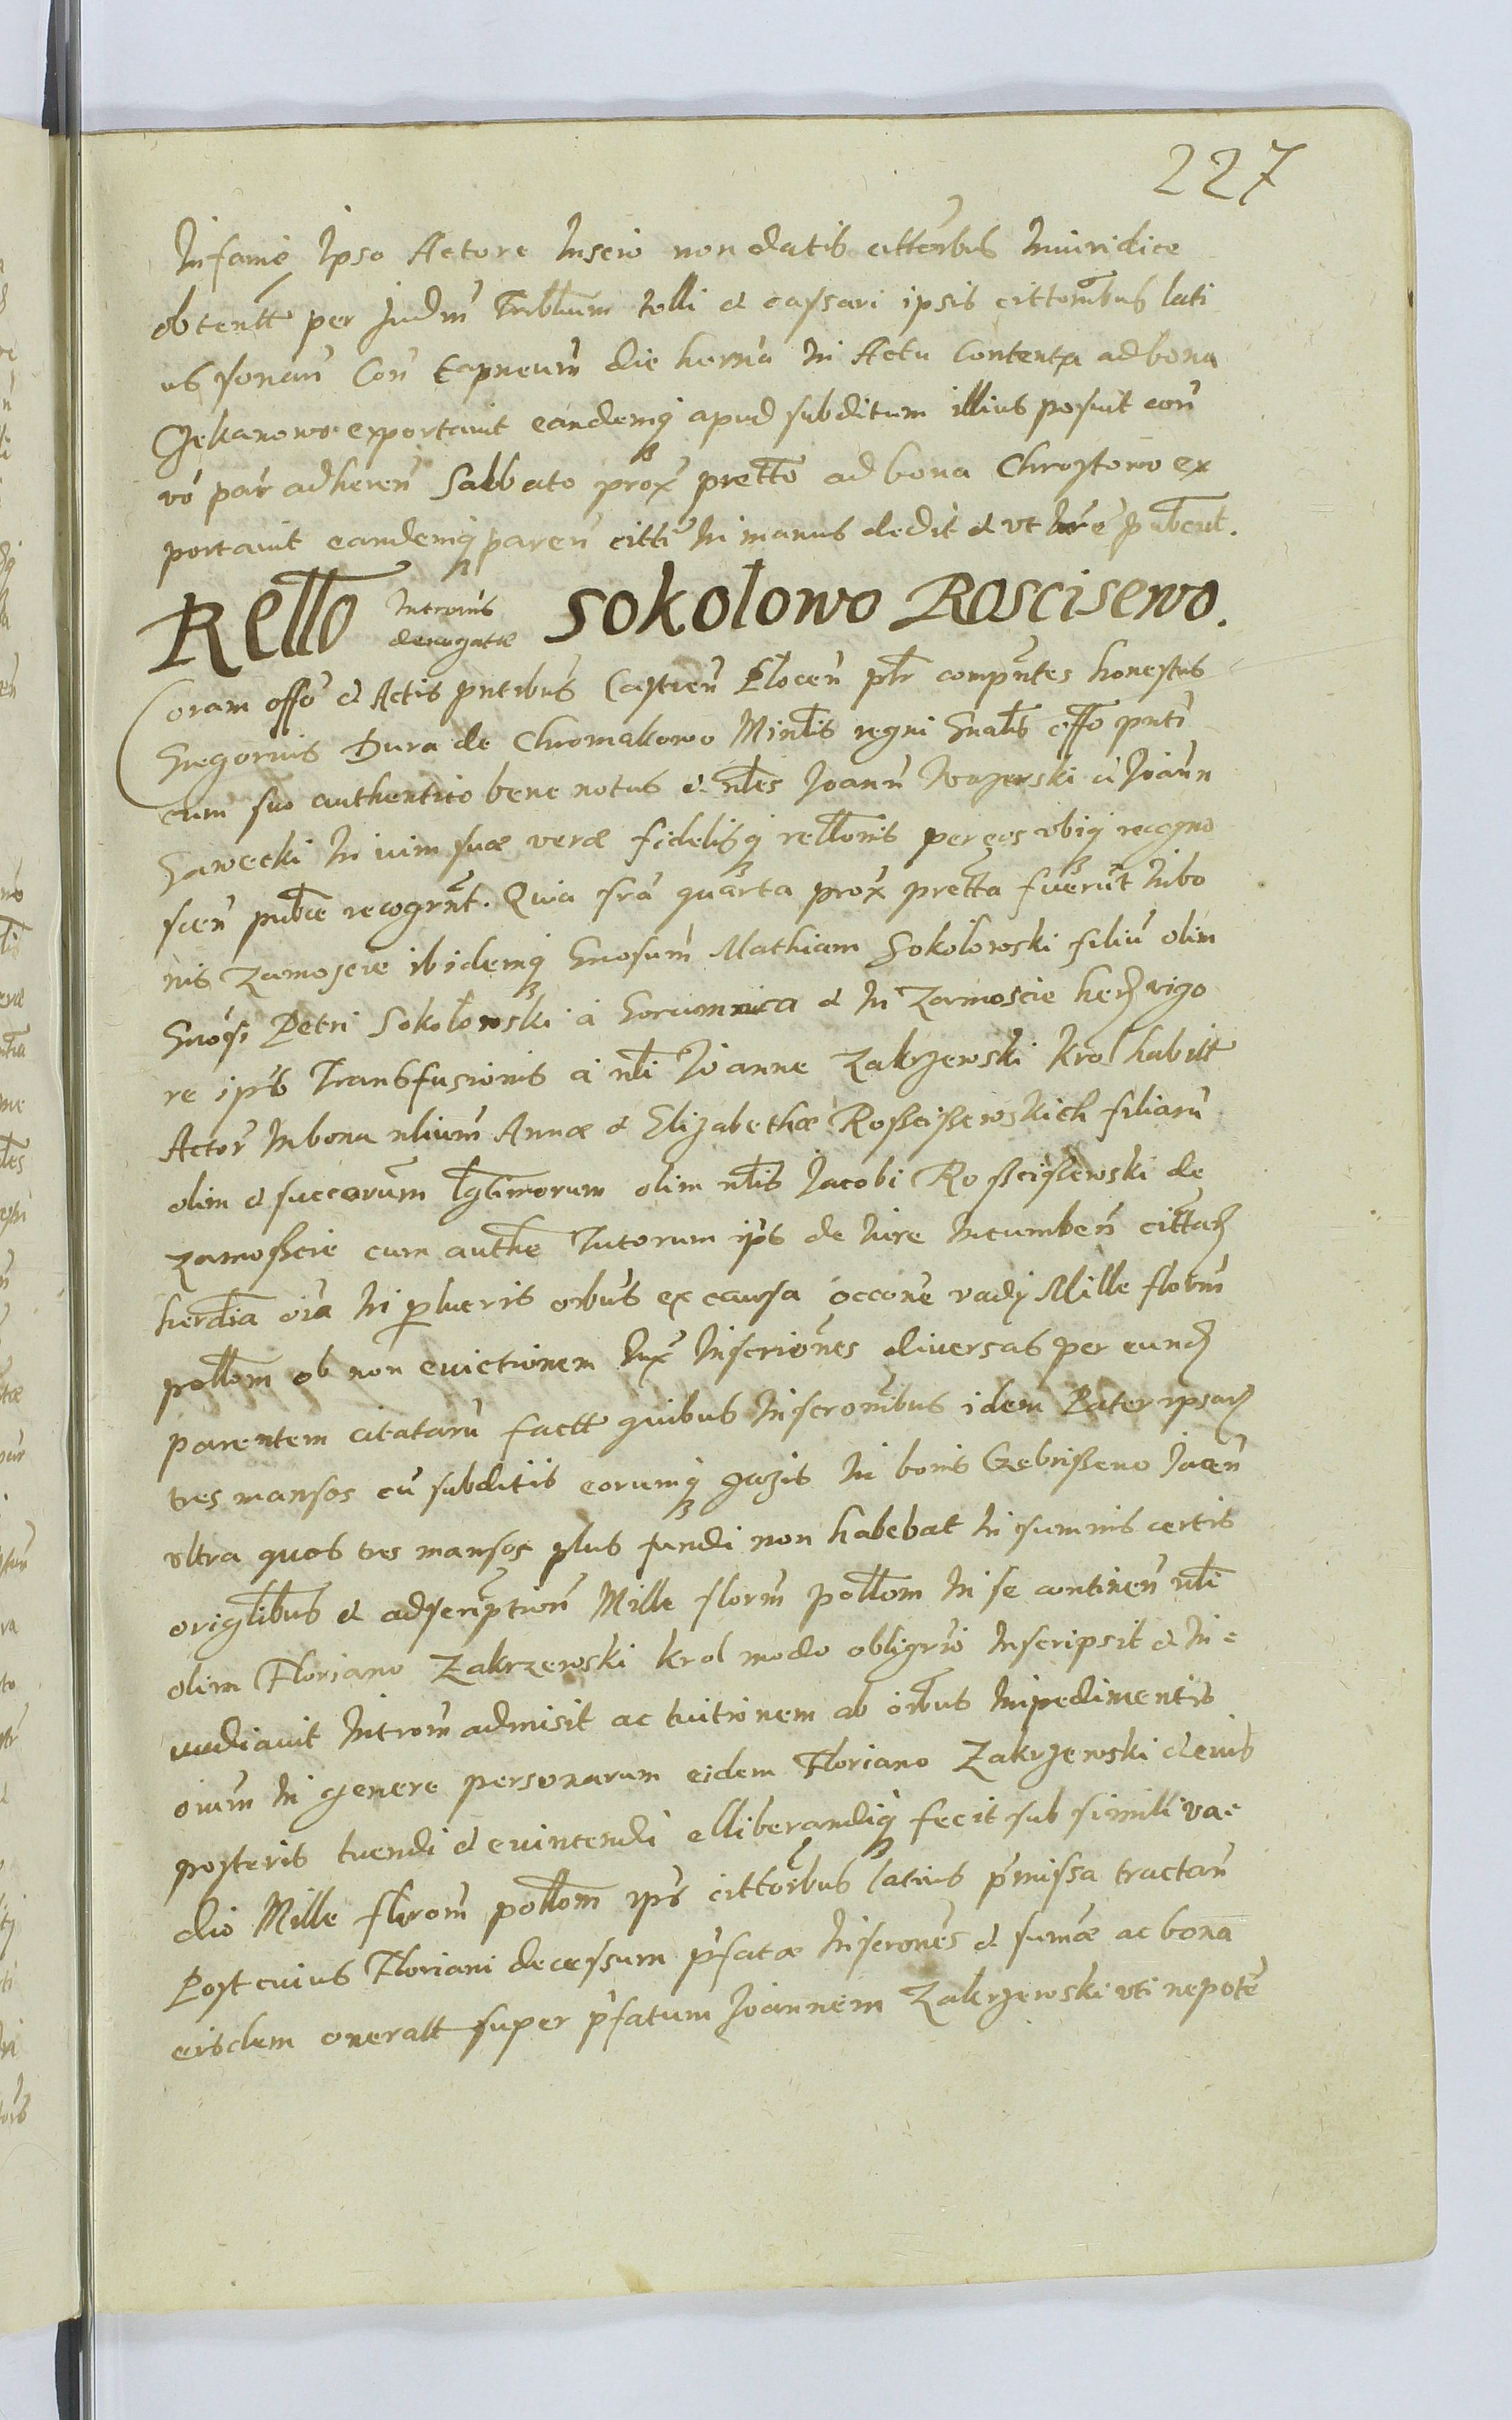 227
Infamię Ipso Actore Inscio non datis cittõnbus Iniuridice
obtentt per Judm̃ Tribłium tolli et cassari ipsis cittõnibus lati
us sonañ Coñ die In Actu Contenta ad bona
Czekanowo exportavit eandemq̃ apud subditum illius posuit coñ
vó pãr adhereñ Sabbato proẋ prettõ ad bona Chrostowo ex
portavit eandemq̃ pareñ citti In manus dedit et vt Iurẽ publicavit.
Relło Intrõnis denegatæ Sokolowo Roscisewo.
Coram offõ et Actis pntibus Castreñ Ploceñ plr̃ compñtes honestus
Gregorius Dura de Chromakowo Minłis regni Gnałis offõ pnti
cum suo authentico bene notus et nłes Joanñ et Joann
Gawecki In vim suæ veræ fidelisq̃ relłonis per eos vbiq̃ recogno
sceñ publce recogrnt. Quia fra quarta proẋ pretta fuerũt In bo
nis Zamoscie ibidemq̃ Gnosum Mathiam Sokolowski filiũ olim
Gnosi Petri Sokolowski a et In Zamoscie herd vigo
re ipĩs Transfusionis a nłi Joanne Zakrzewski Krol habitt
Actorẽ In bona nłium Annæ et Elizabethæ Rosscissewskich filiarũ
olim et succorum lgtimorum olim nłis Jacobi Rosscissewski de
Zamosscie cum authe Tutorum ipĩs de Iure Incumbeñ cittaꝝ
herdia oĩa In pulueris orbus ex causa occone vadij Mille florũm
połłom ob non evictionem Iux̃ Inscriones diversas per eund
parentem citatarũ factt quibus Inscronibus idem Pater ipsaꝝ
tres mansos cũ subditis eorumq̃ In bonis Gebrisseno Jaceñ
vltra quos tres mansos plus fundi non habebat In summis certis
origlibus et adscriptioñ Mille florm̃ połłom In se contineñ nłi
olim Floriano Zakrzewski krol modo obligrio Inscripsit et In=
vadiavit Introm̃ admisit ac tuitionem ab oĩbus Impedimentis
oĩum In genere personarum eidem Floriano Zakrzewski et eius
posteris tuendi et evincendi elliberandiq̃ fecit sub simili va=
dio Mille florom̃ połłom ipĩs cittõnbus latius p̃missa tractañ
Post cuius Floriani decessum p̃fatæ Inscrones et sumæ ac bona
eisdem oneratt super p̃fatum Joannem Zakrzewski vti nepotẽ